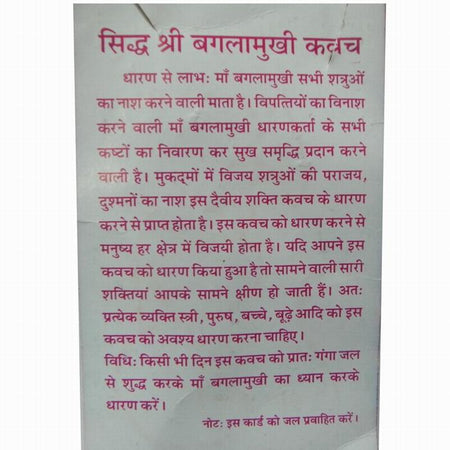 सिद्ध श्री बगलामुखी कवच
धारण से लाभः माँ बगलामुखी सभी शत्रुओं
का नाश करने वाली माता है। विपत्तियों का विनाश
करने वाली माँ बगलामुखी धारणकर्ता के सभी
कष्टों का निवारण कर सुख समृद्धि प्रदान करने
वाली है। मुकद्मों में विजय शत्रुओं की पराजय,
दुश्मनों का नाश इस दैवीय शक्ति कवच के धारण
करने से प्राप्त होता है। इस कवच को धारण करने से
मनुष्य हर क्षेत्र में विजयी होता है। यदि आपने इस
कवच को धारण किया हुआ है तो सामने वाली सारी
शक्तियां आपके सामने क्षीण हो जाती हैं। अतः
प्रत्येक व्यक्ति स्त्री, पुरुष, बच्चे, बूढ़े आदि को इस
कवच को अवश्य धारण करना चाहिए।
विधिः किसी भी दिन इस कवच को प्रातः गंगा जल
से शुद्ध करके माँ बगलामुखी का ध्यान करके
धारण करें।
नोटः इस कार्ड को जल प्रवाहित करें।